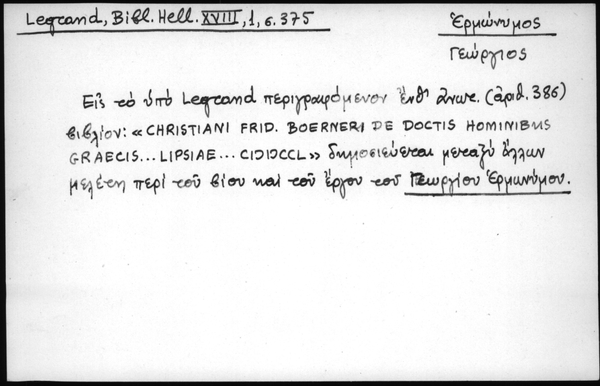 Legrand, Bibl. Hell. XVIII, 1, σ. 375
Ἑρμώνυμος
Γεώργιος
Εἰς τὸ ὑπὸ Legrand περιγραφόμενον ἔνθ' ἄνωτ. (ἀριθ. 386)
βιβλίον: «CHRISTIANI FRID. BOERNERI DE DOCTIS HOMINIBUS
GRAECIS... LIPSIAE... CIƆIƆCCL» δημοσιεύεται μεταξὺ ἄλλων
μελέτη περὶ τοῦ βίου καὶ τοῦ ἔργου τοῦ Γεωργίου Ἑρμωνύμου.